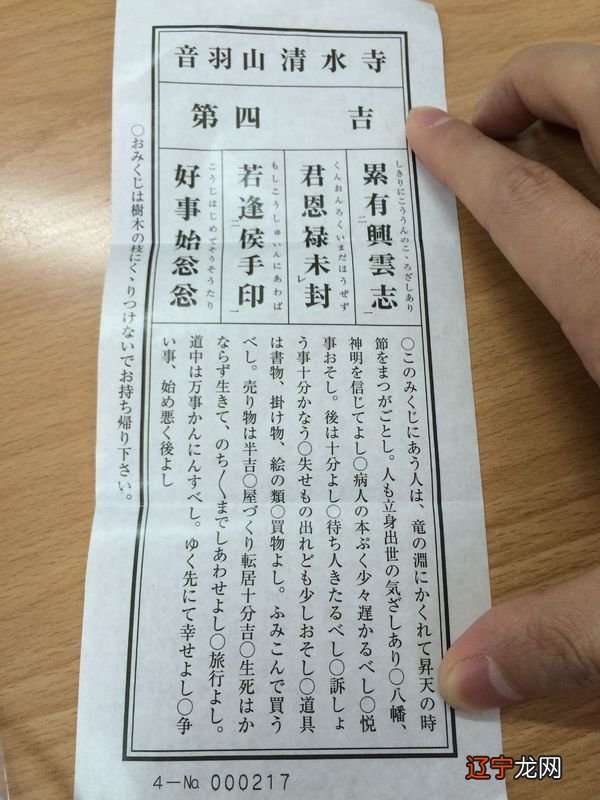 音羽山清水寺
第四 吉
しきりにこううんのこゝろざしあり
累有二興雲志一
くんおんろくいまだほうぜず
君恩禄未レ封
もしこうしゅいんにあわば
若逢二侯手印一
こうじはじめてそうそうたり
好事始忩忩
〇このみくじにあう人は、竜の淵にかくれて昇天の時
節をまつがごとし。人も立身出世の気ざしあり〇八幡、
神明を信じてよし〇病人の本ぷく少々遅かるべし〇悦
事おそし。後は十分よし〇待ち人きたるべし〇訴しょ
う事十分かなう〇失せもの出れども少しおそし〇道具
は書物、掛け物、絵の類〇買物よし。ふみこんで買う
べし。売り物は半吉〇屋づくり転居十分吉〇生死はか
ならず生きて、のち〱までしあわせよし〇旅行よし。
道中は万事かんにんすべし。ゆく先にて幸せよし〇争
い事、始め悪く後よし
〇おみくじは樹木の枝にくゝりつけないでお持ち帰り下さい。
4―No. 000217
辽宁龙网